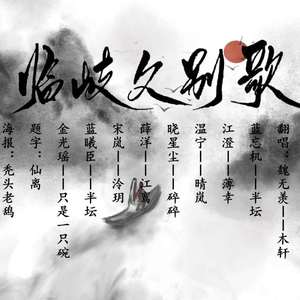 临歧久别歌
翻唱：魏无羡——木轩
蓝忘机——半坛
江澄——薄幸
温宁——晴岚
晓星尘——碎碎
薛洋——江篱
宋岚——泠玥
蓝曦臣——半坛
金光瑶——只是一只碗
题字：仙离
海报：秃头老鸽